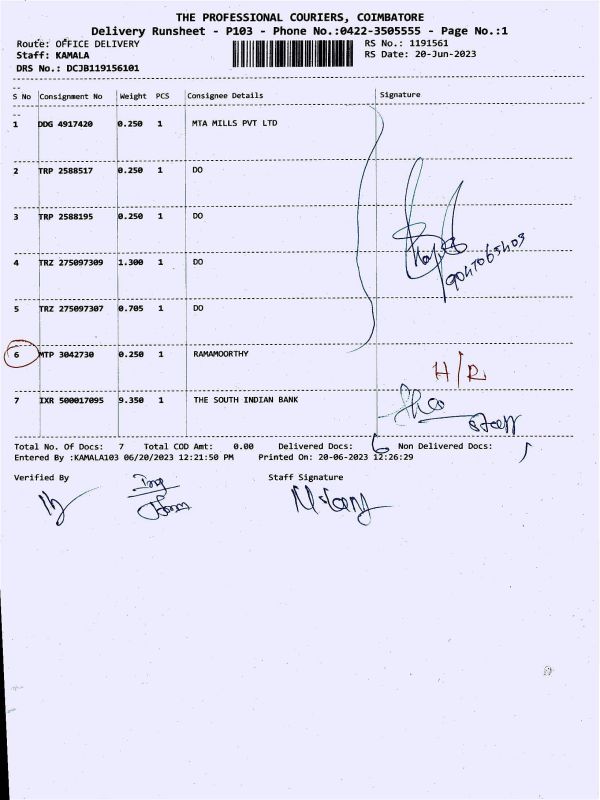 THE PROFESSIONAL COURIERS, COIMBATORE
Delivery Runsheet - P103 - Phone No.:0422-3505555 - Page No.:1
Route: OFFICE DELIVERY RS No.: 1191561
Staff: KAMALA RS Date: 20-Jun-2023
DRS No.: DCJB119156101
S No Consignment No Weight PCS Consignee Details Signature
1 DDG 4917420 0.250 1 MTA MILLS PVT LTD
2 TRP 2588517 0.250 1 DO
3 TRP 2588195 0.250 1 DO
4 TRZ 275097309 1.300 1 DO
5 TRZ 275097307 0.705 1 DO
6 MTP 3042730 0.250 1 RAMAMOORTHY
H/R
7 IXR 500017095 9.350 1 THE SOUTH INDIAN BANK
Total No. Of Docs: 7 Total COD Amt: 0.00 Delivered Docs: 6 Non Delivered Docs: 1
Entered By :KAMALA103 06/20/2023 12:21:50 PM Printed On: 20-06-2023 12:26:29
Verified By Staff Signature